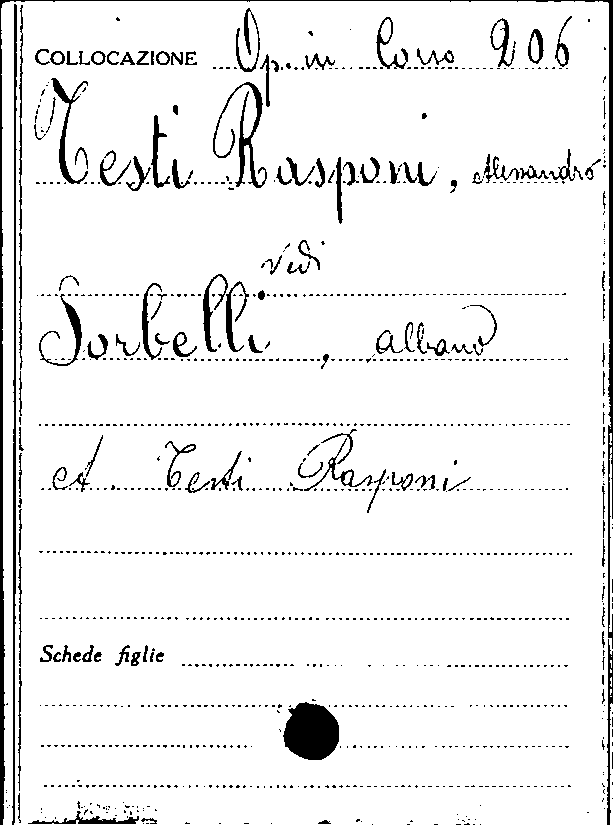 COLLOCAZIONE Op. in Corso 206
Testi Rasponi, Alessandro
vedi
Sorbelli, Albano
A. Testi Rasponi
Schede figlie